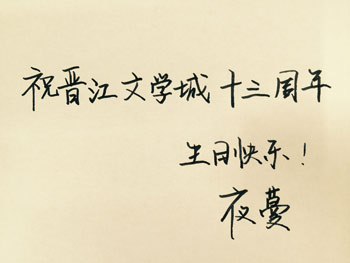 祝晋江文学城十三周年
生日快乐！
夜蔓